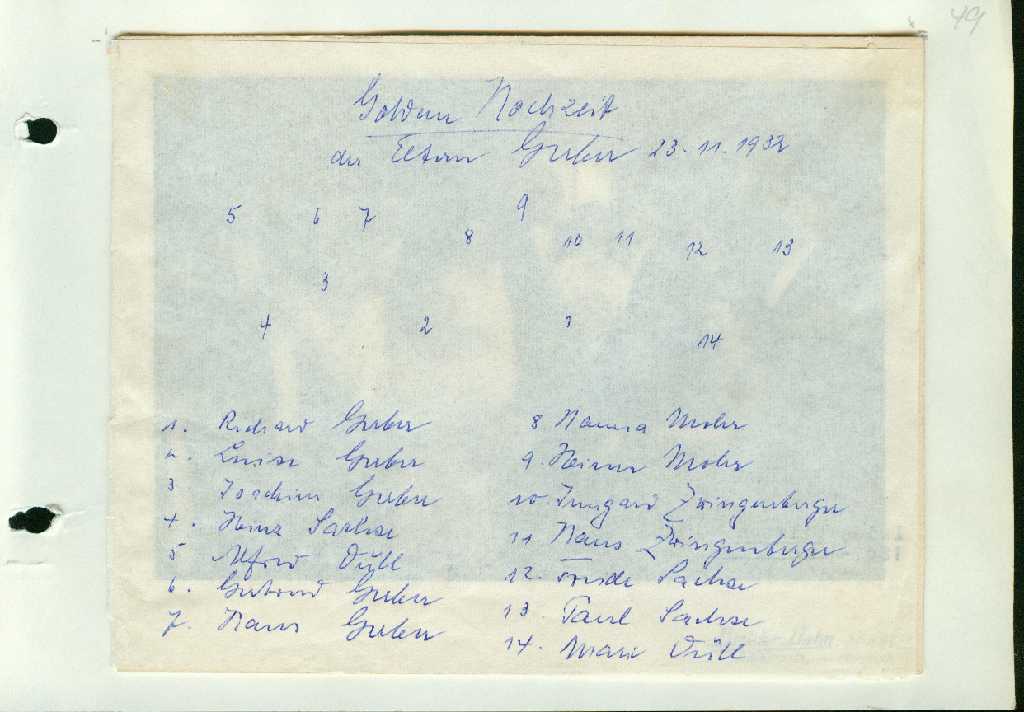 49
Goldene Hochzeit
der Eltern Greber 23.11.1932
9
5 6 7
8 10 11 12 13
3
4 2 1
14
1. Richard Greber
2. Luise Greber
3 Joachim Greber
4. Heinz Sachse
5 Alfred Düll
6. Gertrud Greber
7. Hans Greber
8 Hanna Mohr
9. Heiner Mohr
10. Irmgard Zwingenberger
11 Hans Zwingenberger
12. Frieda Sachse
13 Paul Sachse
14. Marie Düll